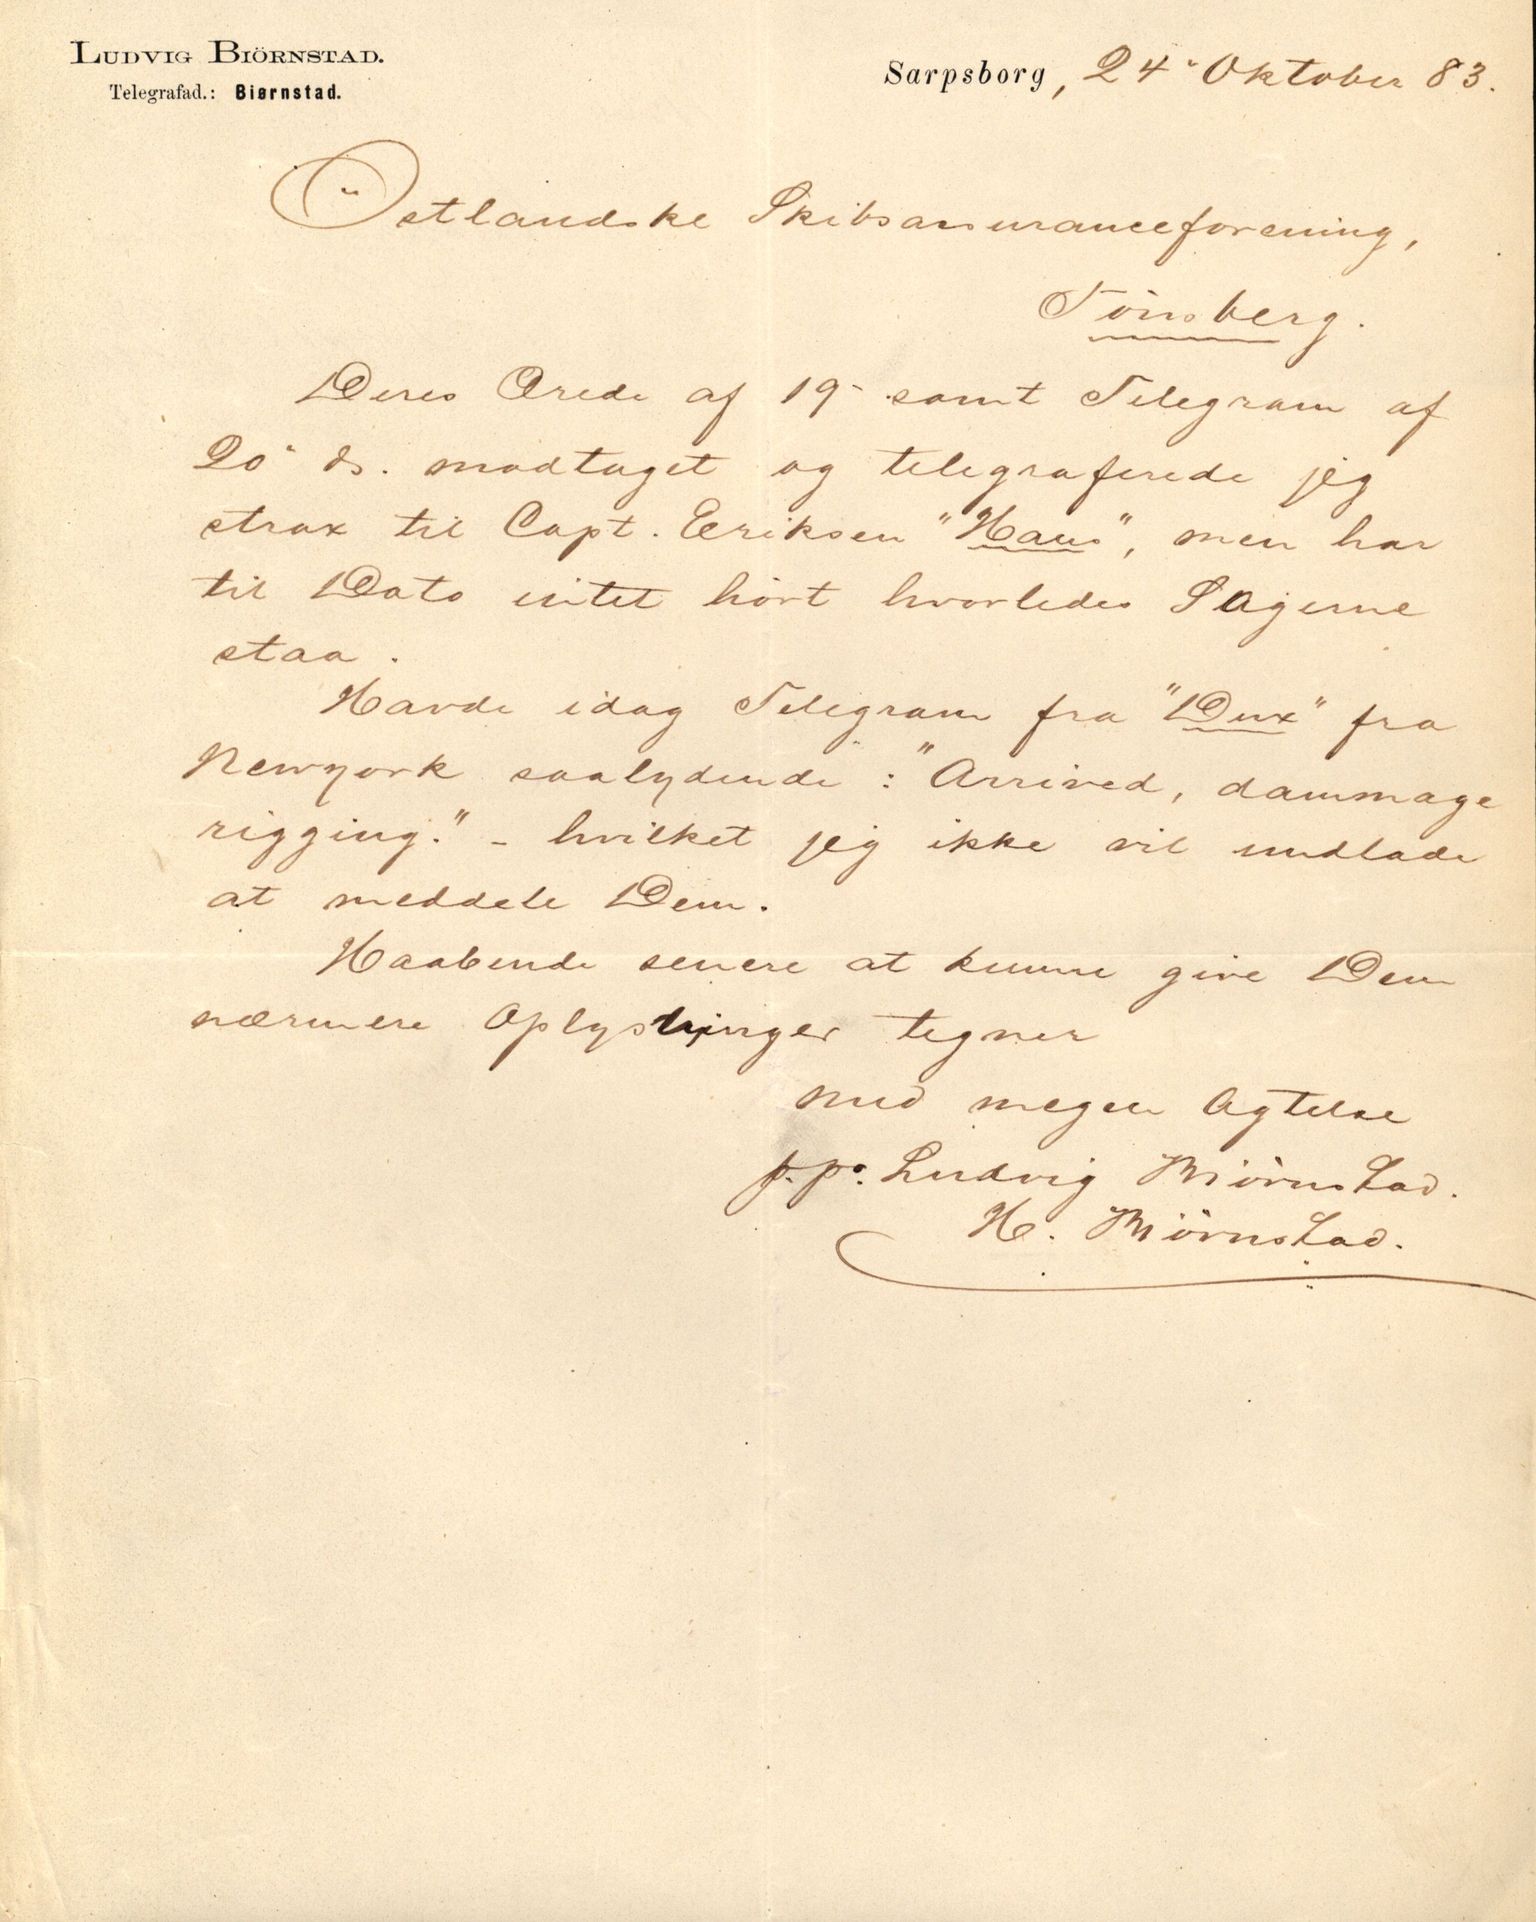 LUDVIG BIÖRNSTAD.
Telegrafad.: Biørnstad.
Sarpsborg, 24' Oktober 83.
Östlandske Skibsassuranceforening,
Tönsberg.
Deres Ærede af 19- samt Telegram af
20' ds. modtaget og telegraferede jeg
strax til Capt. Eriksen "Hans", men har
til Dato intet hört hvorledes Sagerne
staa.
Havde idag Telegram fra "Dux" fra
Newyork saalydende: "Arrived, dammage
rigging." - hvilket jeg ikke vil undlade
at meddele Dem.
Haabende senere at kunne give Dem
nærmere Oplysninger tegner
med megen Agtelse
p. po. Ludvig Biörnstad.
H. Biörnstad.